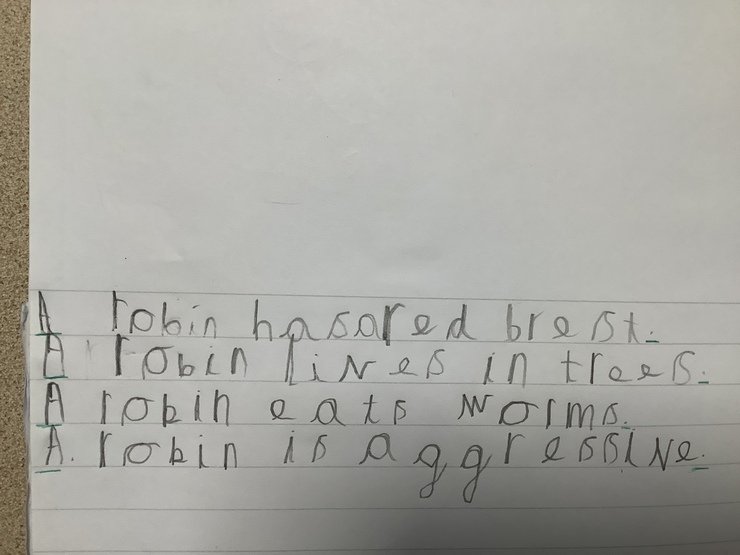 A robin hasared brest.
A robin lives in trees.
A robin eats worms.
A. robin is aggressive.